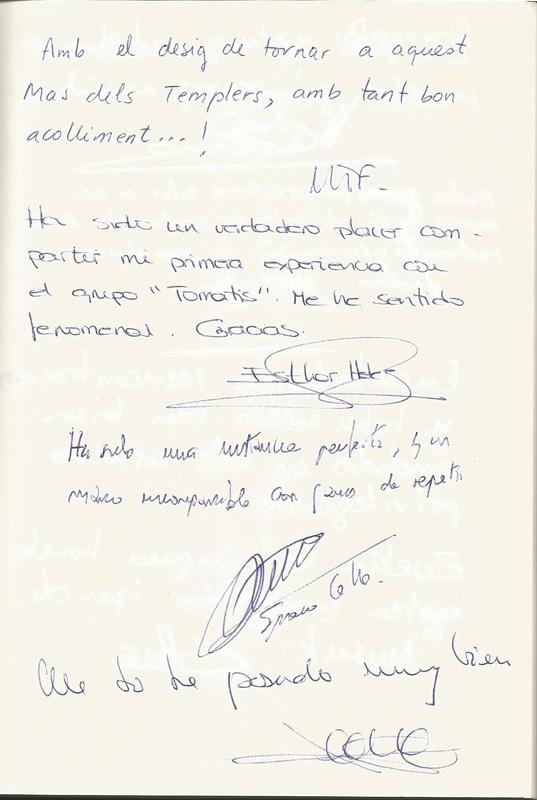 Amb el desig de tornar a aquest
Mas dels Templers, amb tant bon
acolliment...!
Ha sido un verdadero placer com-
partir mi primera experiencia con
el grupo "Tomatis". Me he sentido
fenomenal. Gracias.
Esther
Ha sido una perfecta, y un
incomparable con ganas de repetir
Me lo he pasado muy bien